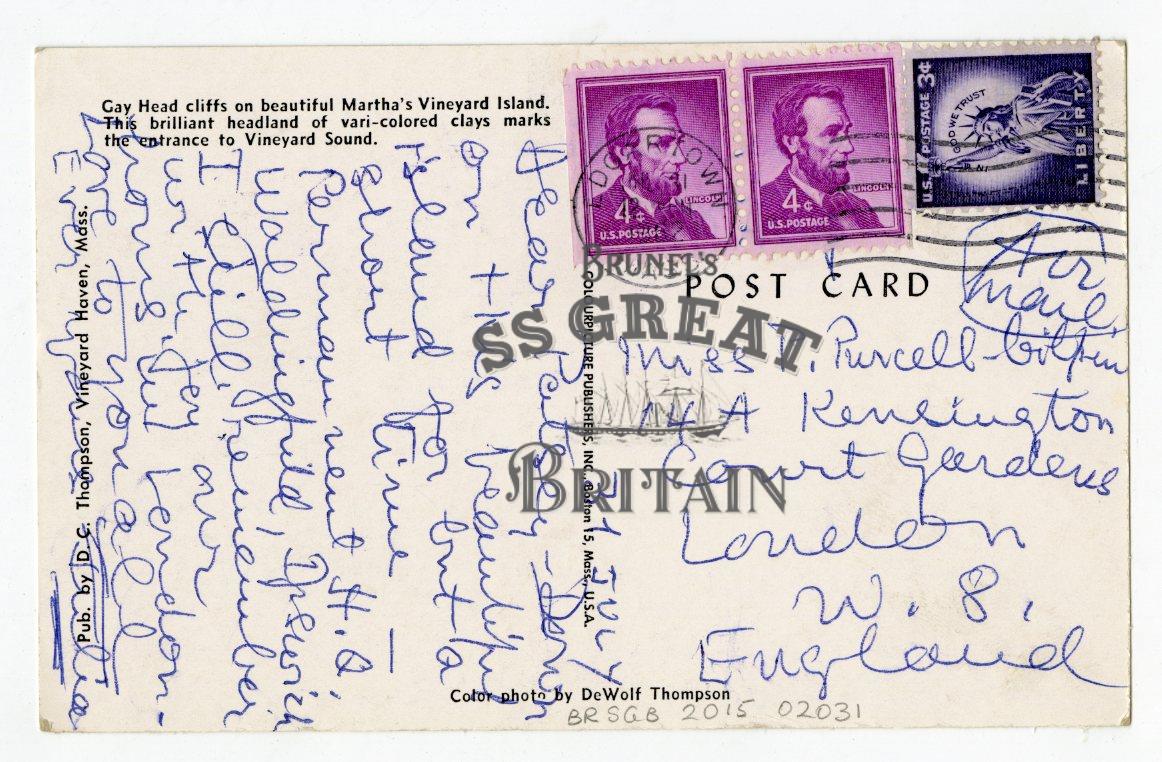 Gay Head cliffs on beautiful Martha's Vineyard Island.
This brilliant headland of vari-colored clays marks
the entrance to Vineyard Sound.
27 July
Dear
on this beautiful
island for but a
short time —
Permanent H.Q.
Waldingfield, Ipswich
I still remember
our
winter London-
Love to you all
Ever yours
Pub. by D. C. Thompson, Vineyard Haven, Mass.
COLOURPICTURE PUBLISHERS, INC., Boston 15, Mass., U.S.A.
Color photo by DeWolf Thompson
BRSGB 2015 02031
4¢
LINCOLN
U.S. POSTAGE
4¢
LINCOLN
U.S. POSTAGE
U.S. POSTAGE 3¢
IN GOD WE TRUST
LIBERTY
EDGARTOWN
POST CARD
Air
mail
Miss Purcell-Gilpin
14 A Kensington
Court Gardens
London
W. 8.
England
BRUNEL'S
SS GREAT
BRITAIN